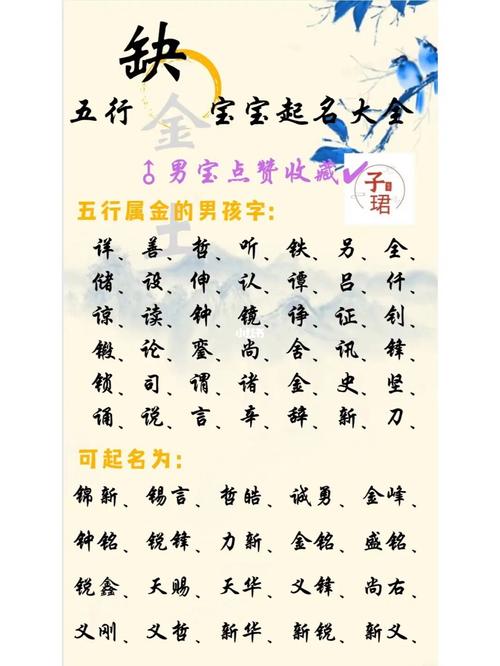 缺
五行金土宝宝起名大全
♂男宝点赞收藏✓
子珺
五行属金的男孩字:
详、善、哲、听、铁、另、全、
储、设、伸、认、谭、吕、仟、
谅、读、钟、镜、诤、证、钊、
锻、论、銮、尚、舍、讯、锋、
锁、司、谓、诸、金、史、坚、
诵、说、言、辛、辞、新、刀、
小红书
可起名为:
锦新、锡言、哲皓、诚勇、金峰、
钟铭、锐锋、力新、金铭、盛铭、
锐鑫、天赐、天华、义锋、尚右、
义刚、义哲、新华、新锐、新义、